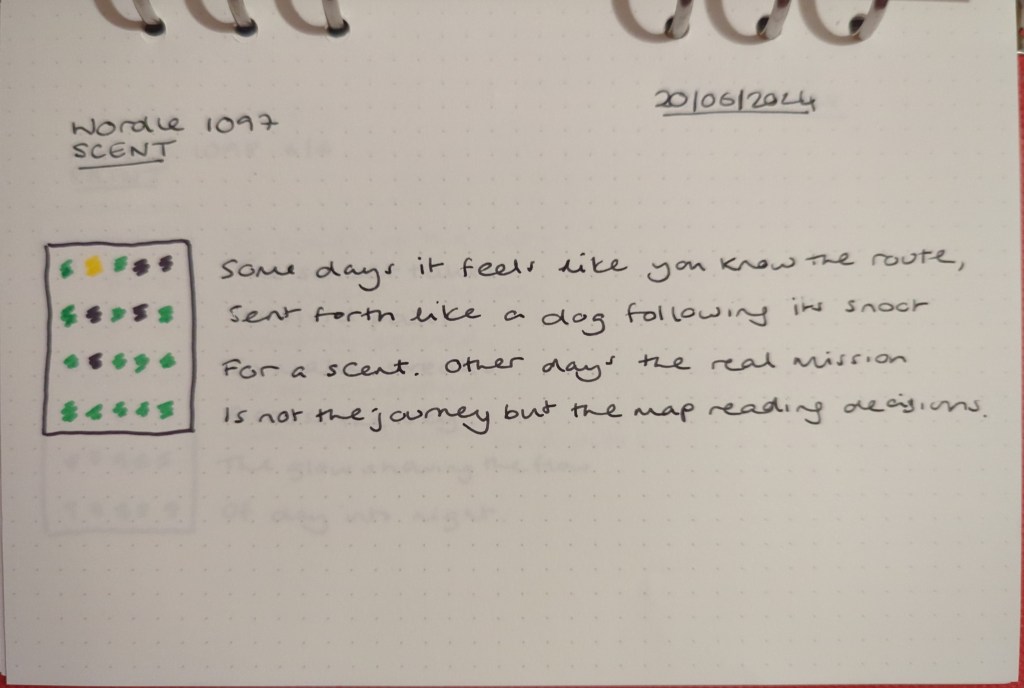 20/06/2024
Wordle 1097
SCENT
Some days it feels like you know the route,
Sent forth like a dog following its snoot
For a scent. Other days the real mission
Is not the journey but the map reading decisions.